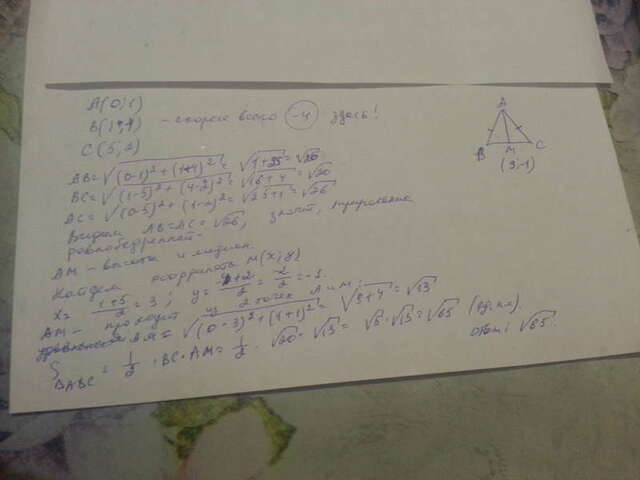 A(0;1)
B(1;4) - скорее всего -4 здесь!
C(5;2)
A
B M C
(3;-1)
AB = √((0-1)² + (1+4)²) = √(1+25) = √26
BC = √((1-5)² + (4-2)²) = √(16+4) = √20
AC = √((0-5)² + (1-2)²) = √(25+1) = √26
Видим AB=AC=√26, значит, треугольник
равнобедренный.
AM - высота и медиан.
Найдем координаты M(x;y)
x = (1+5)/2 = 3; y = 2/2 = -1.
AM - проходит ч/з 2 точки A и M;
AM = √((0-3)² + (1+1)²) = √(9+4) = √13
S ΔABC = 1/2 · BC · AM = 1/2 · √20 · √13 = √5 · √13 = √65 (ед. кв.)
Ответ: √65.